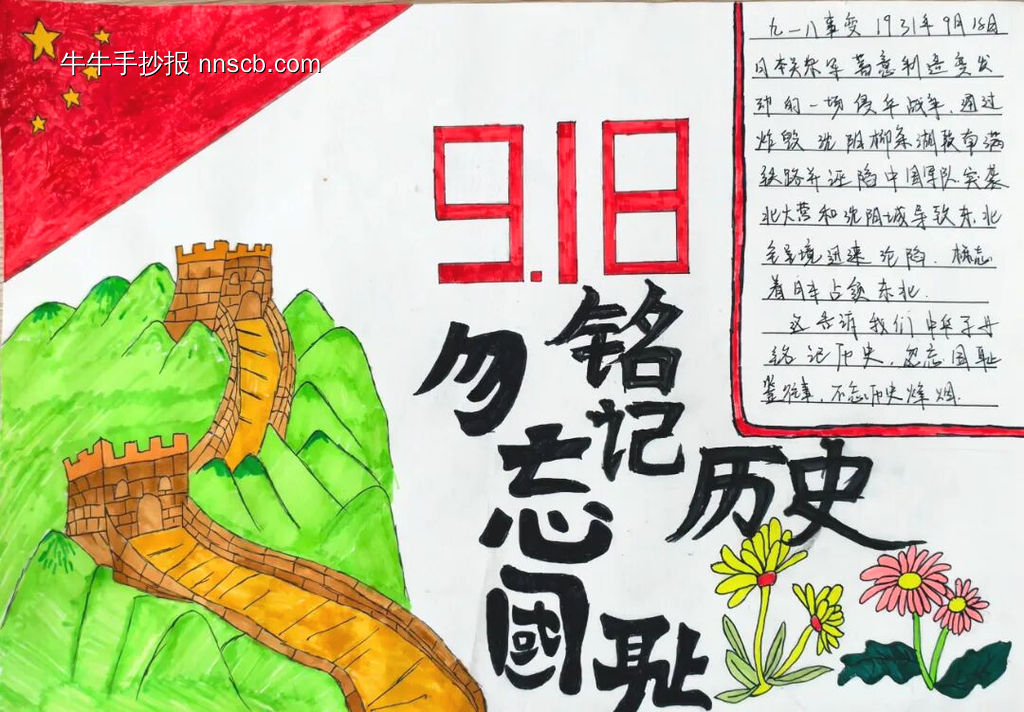 牛牛手抄报 nnscb.com
9.18
铭记历史
勿忘國耻
九一八事变 1931年9月18日
日本关东军蓄意制造突发
动的一场侵华战争.通过
炸毁沈阳柳条湖段南满
铁路并诬陷中国军队突袭
北大营和沈阳城导致东北
全境迅速沦陷.标志
着日本占领东北.
这告诉我们中华子
铭记历史,勿忘国耻
鉴往事,不忘历史烽烟.